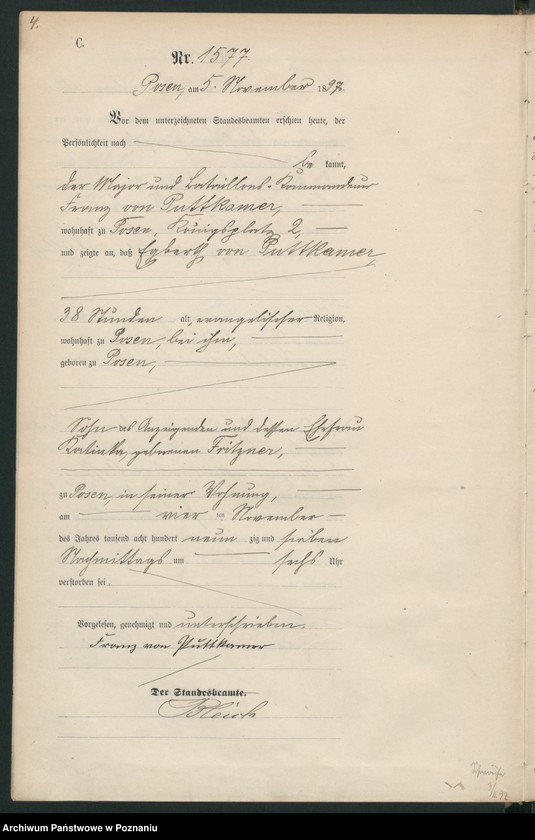 4.
C.
Nr. 1577.
Posen, am 5. November 1897.
Vor dem unterzeichneten Standesbeamten erschien heute, der
Persönlichkeit nach
be kannt,
der Major und Bataillons-Kommandeur
Franz von Puttkamer,
wohnhaft zu Posen, Königsplatz 2,
und zeigte an, daß Egberth von Puttkamer
38 Stunden alt, evangelischer Religion,
wohnhaft zu Posen, bei ihm,
geboren zu Posen,
Sohn des Anzeigenden und dessen Ehefrau
Katinka, geborenen Fritzner,
zu Posen, in seiner Wohnung,
am vier ten November
des Jahres tausend acht hundert neun zig und sieben
Nachmittags um sechs Uhr
verstorben sei.
Vorgelesen, genehmigt und unterschrieben.
Franz von Puttkamer
Der Standesbeamte.
Archiwum Państwowe w Poznaniu